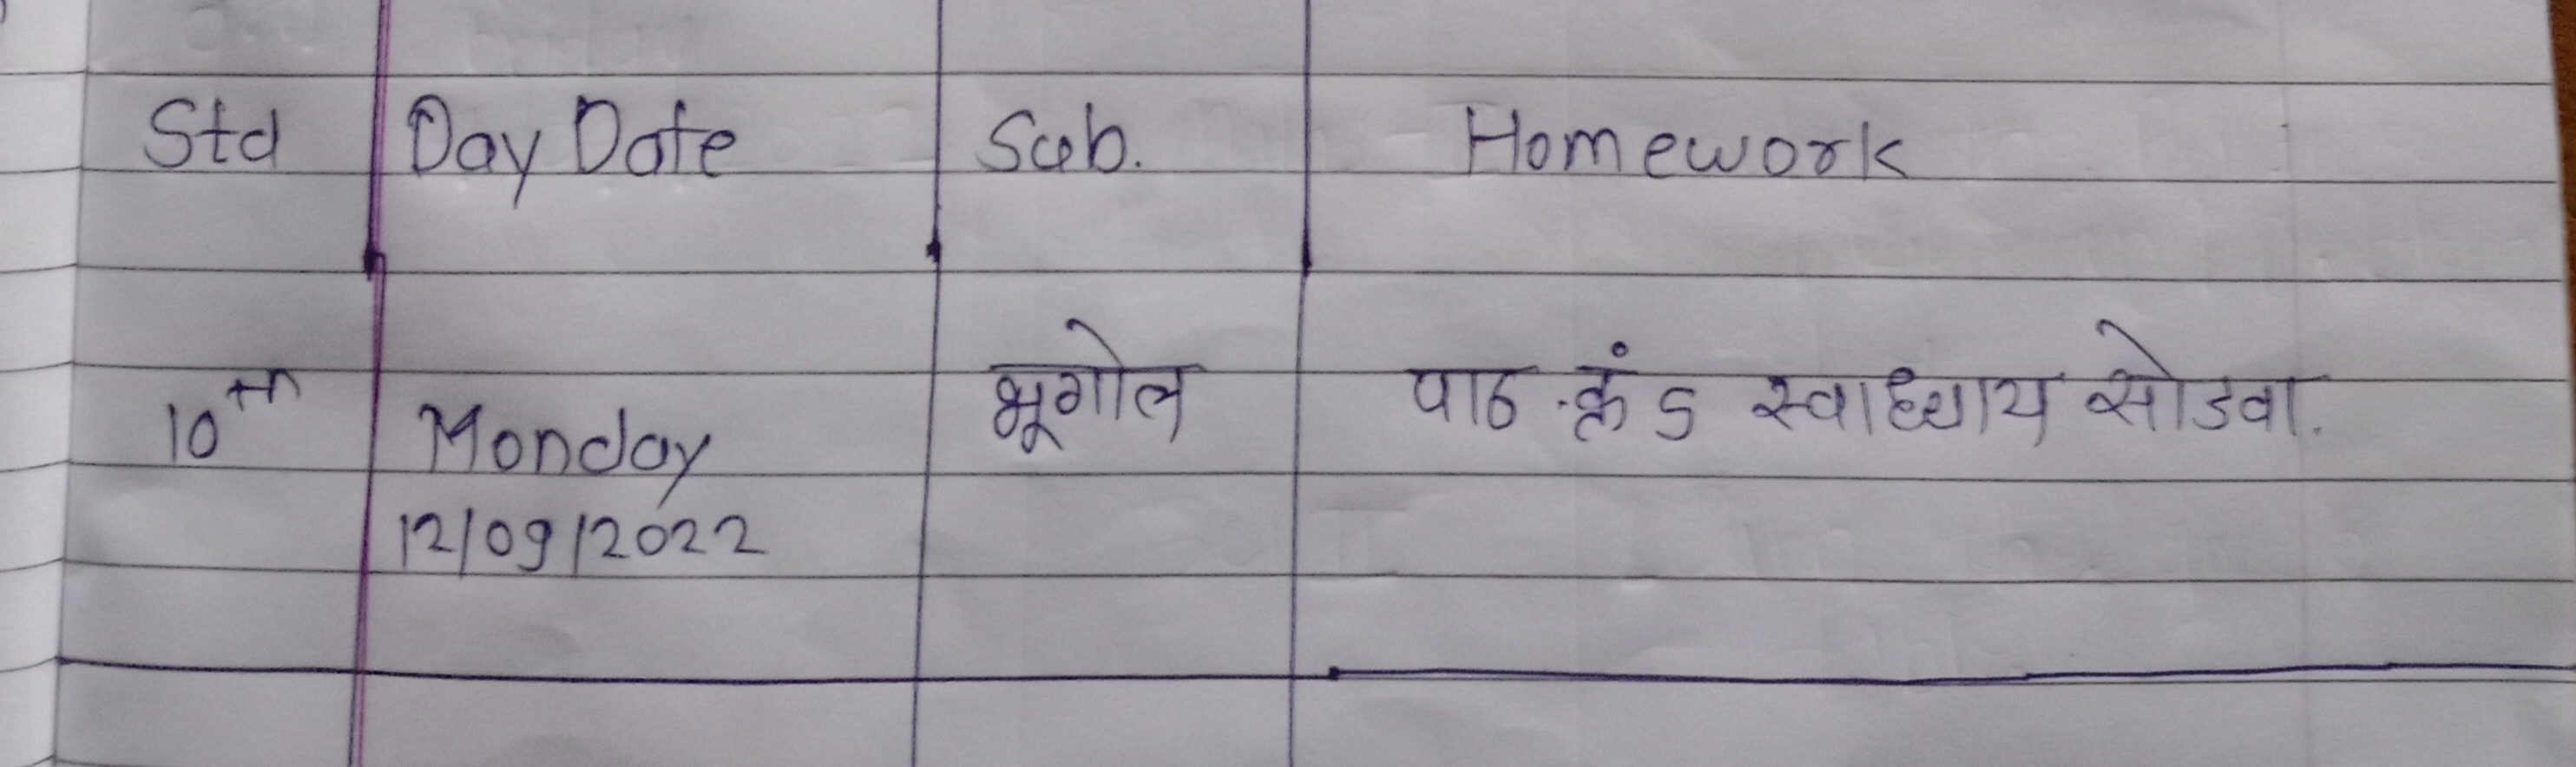 Std Day Date Sub. Homework
10th Monday भूगोल पाठ क्रं 5 स्वाध्याय सोडवा.
12/09/2022